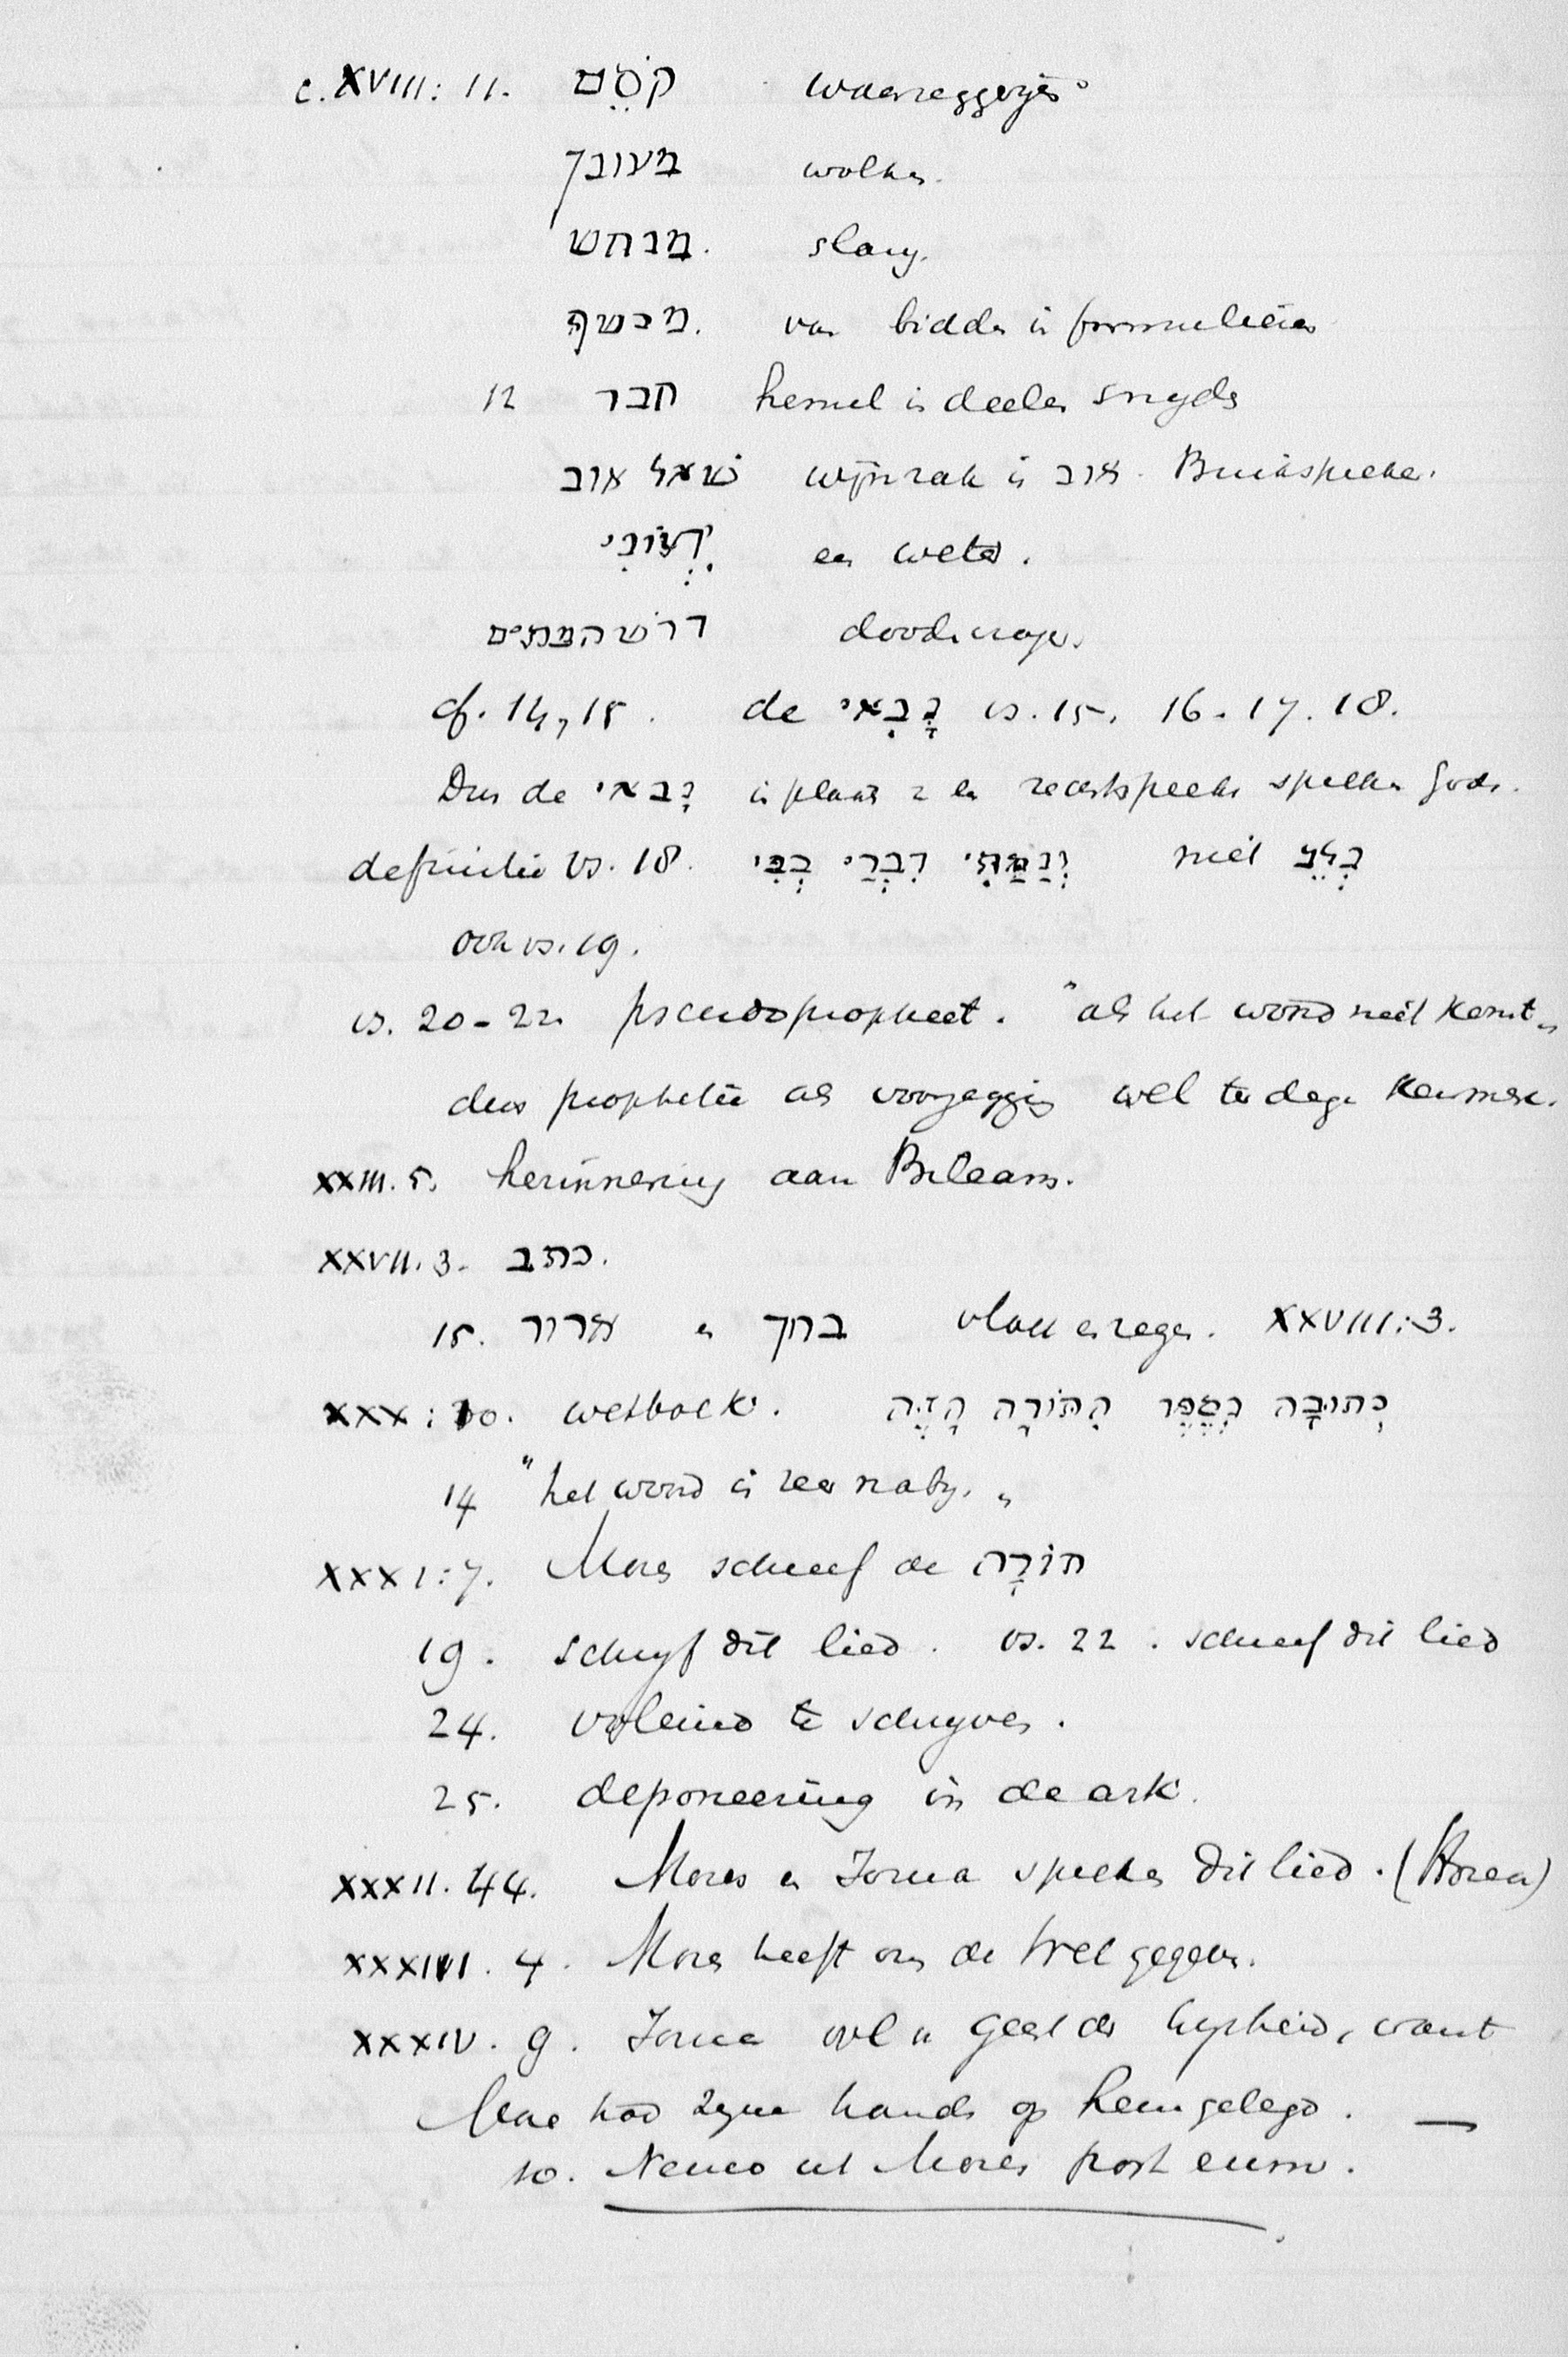 c. XVIII: 11. קֹסֵם waarzeggerijen
מעונן wolken.
מנחש. slang.
מכשף. van bidden in formulieren
12 חבר hemel in deelen snyden
שׁאל אוב wijnzak is אוב. Buikspreker.
יִדְּעֹנִי een weter.
דרשׁ המתים doodenvrager.
cf. 14, 15. de נָבִאי vs. 15, 16. 17. 18.
Dus de נָבאי in plaats v en rechtspreeks spreker Gods.
definitie vs. 18. וְנָתַתִּי דְבָרַי בְּפִי niet בְּלֵב
ook vs. 19.
vs. 20-22 pseudopropheet. "als het woord niet komt„
dus prophetie als voorzegging wel ter dege kenmerk.
XXIII. 5. herinnering aan Bileam.
XXVII. 3. כתב.
15. ארור en ברוך vloek en zegen. XXVIII: 3.
XXX: 10. wetboek. כְּתוּבָה בְּסֵפֶר הַתּוֹרָה הַזֶּה
14 "het woord is zeer naby.„
XXXI: 7. Mozes schreef de תוֹרָה
19. schryf dit lied. vs. 22. schreef dit lied
24. voleind te schryven.
25. deponeering in de ark.
XXXII. 44. Mozes en Jozua spreken dit lied. (Hosea)
XXXIII. 4. Mozes heeft ons de Wet gegeven.
XXXIV. 9. Jozua vol v Geest der wysheid, want
Mozes had zyne handen op hem gelegd. —
10. Nemo ut Mozes post eum.